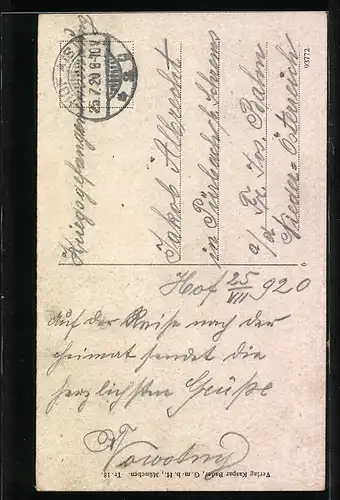 Kriegsgefangenen
25.7.20 8-10V
Jakob Albrecht
in Pürbach b/ Schrems
a/d Fr. Jos. Bahn
Nieder-Österreich
93772
Hof 25/VII 920
Auf der Reise nach der
Heimat sendet die
herzlichsten Grüße
Nowotny
Verlag Kaspar Bader, G. m. b. H., München. Tr. 15.